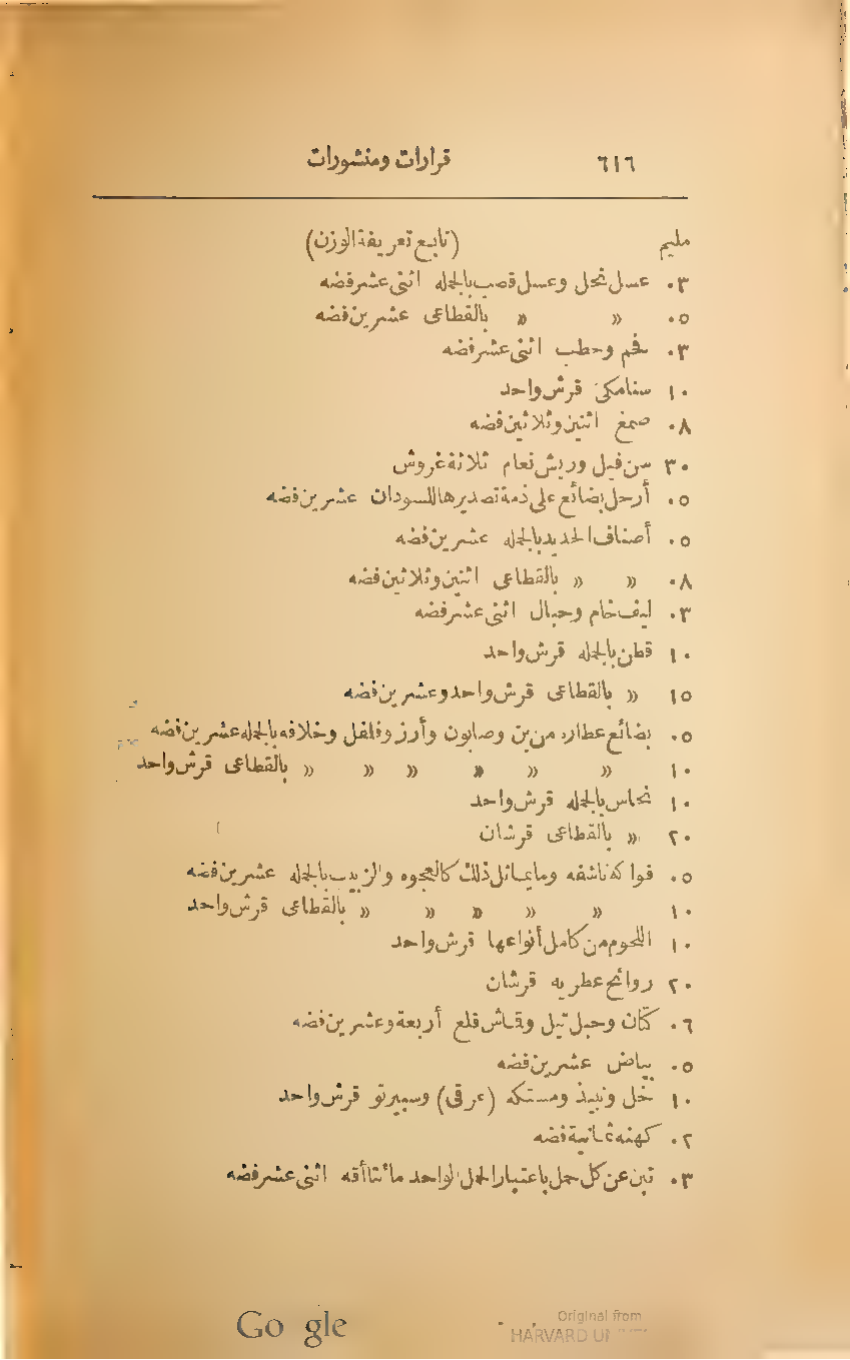 ٦١٦ قرارات ومنشورات
مليم (تابع تعريفة الوزن)
٠٣ عسل نحل وعسل قصب بالجمله اثنى عشر فضه
٠٥ » » بالقطاعى عشرين فضه
٠٣ فحم وحطب اثنى عشر فضه
١٠ سنامكى قرش واحد
٠٨ صمغ اثنين وثلاثين فضه
٣٠ سن فيل وريش نعام ثلاثة غروش
٠٥ أرحل بضائع على ذمة تصديرها للسودان عشرين فضه
٠٥ أصناف الحديد بالجمله عشرين فضه
٠٨ » » بالقطاعى اثنين وثلاثين فضه
٠٣ ليف خام وحبال اثنى عشر فضه
١٠ قطن بالجمله قرش واحد
١٥ » بالقطاعى قرش واحد وعشرين فضه
٠٥ بضائع عطاره من بن وصابون وأرز وفلفل وخلافه بالجمله عشرين فضه
١٠ » » » » » » بالقطاعى قرش واحد
١٠ نحاس بالجمله قرش واحد
٢٠ » بالقطاعى قرشان
٠٥ فواكه ناشفه ومايماثل ذلك كالعجوه والزبيب بالجمله عشرين فضه
١٠ » » » » » بالقطاعى قرش واحد
١٠ اللحوم من كامل أنواعها قرش واحد
٢٠ روائح عطريه قرشان
٠٦ كتان وحبل تيل وقماش قلع أربعة وعشرين فضه
٠٥ بياض عشرين فضه
١٠ خل ونبيذ ومستكه (عرقى) وسبيرتو قرش واحد
٠٢ كهنه ثمانية فضه
٠٣ تبن عن كل حمل باعتبار الحمل الواحد مائتا أقه اثنى عشر فضه
Google
Original from
HARVARD